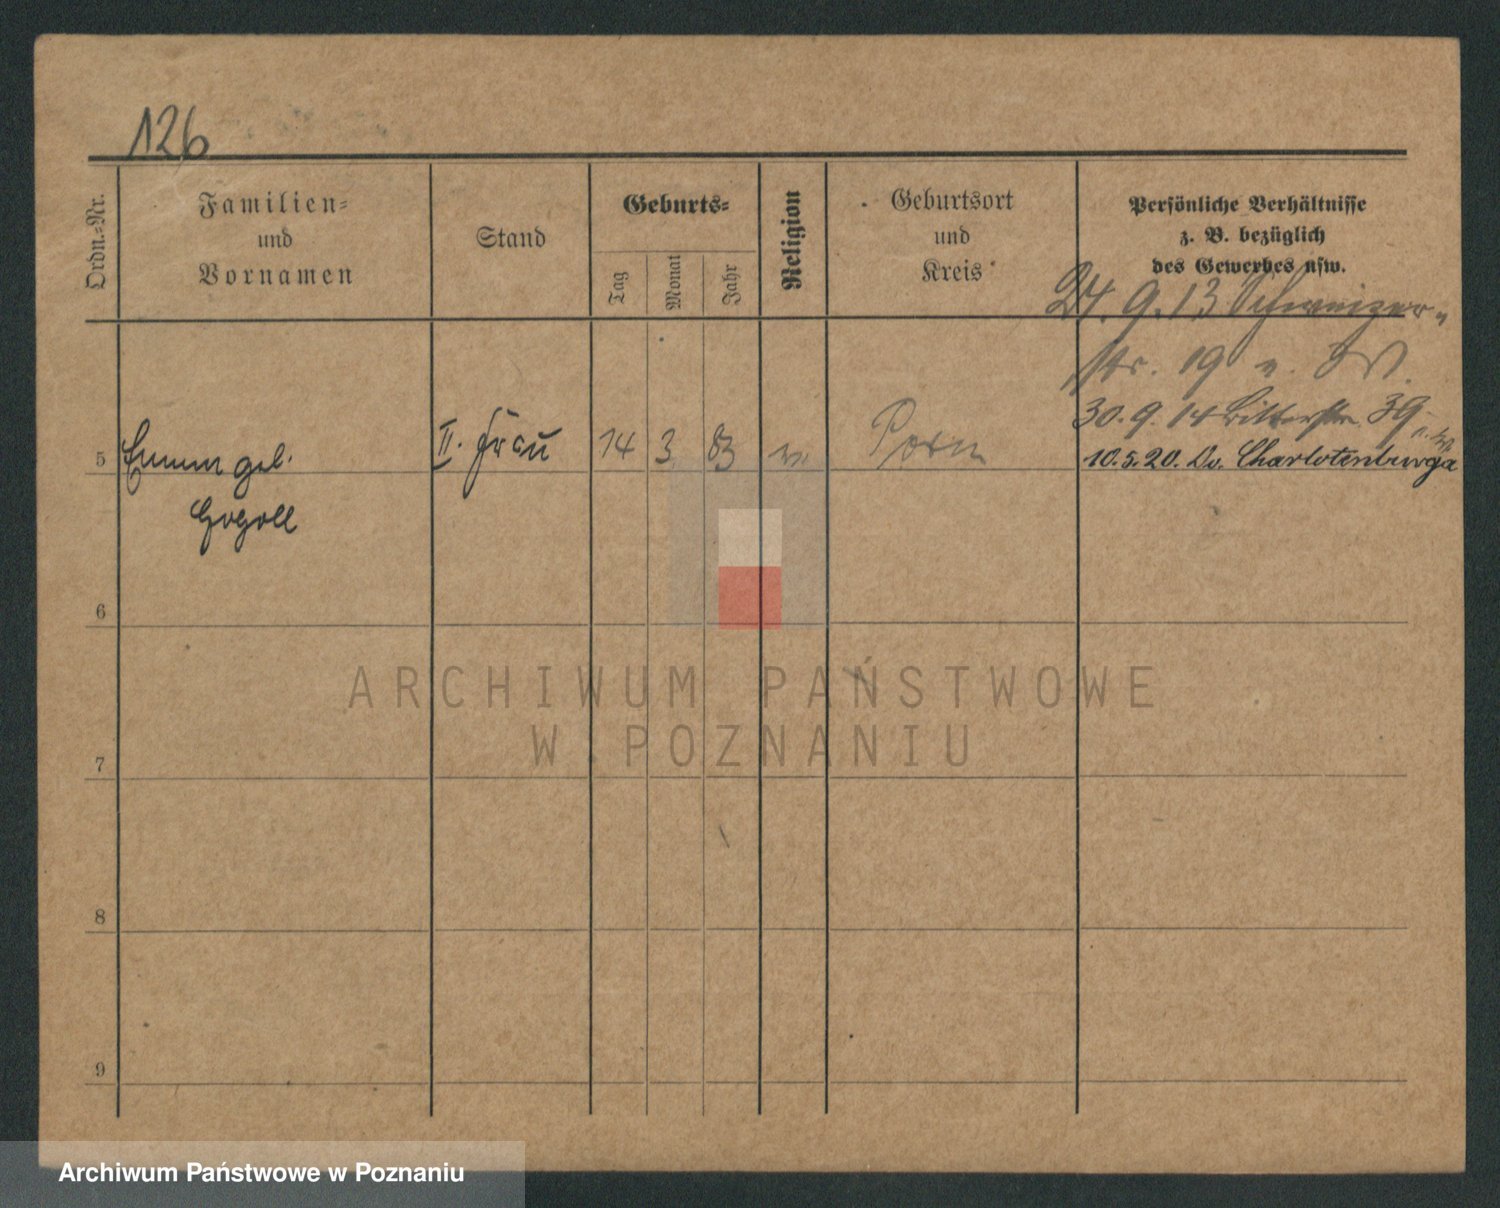 126
Ordn.-Nr.
Familien-
und
Vornamen
Stand
Geburts-
Tag
Monat
Jahr
Religion
Geburtsort
und
Kreis
Persönliche Verhältnisse
z. B. bezüglich
des Gewerbes usw.
24. 9. 13 Schweizer-
str. 19
30. 9. 14 Ritterstr. 39
5 Emma geb. II. Frau 14 3 83 Posen 10. 5. 20. Charlottenburg
Gogoll
6
7
8
9
ARCHIWUM PAŃSTWOWE
W POZNANIU
Archiwum Państwowe w Poznaniu